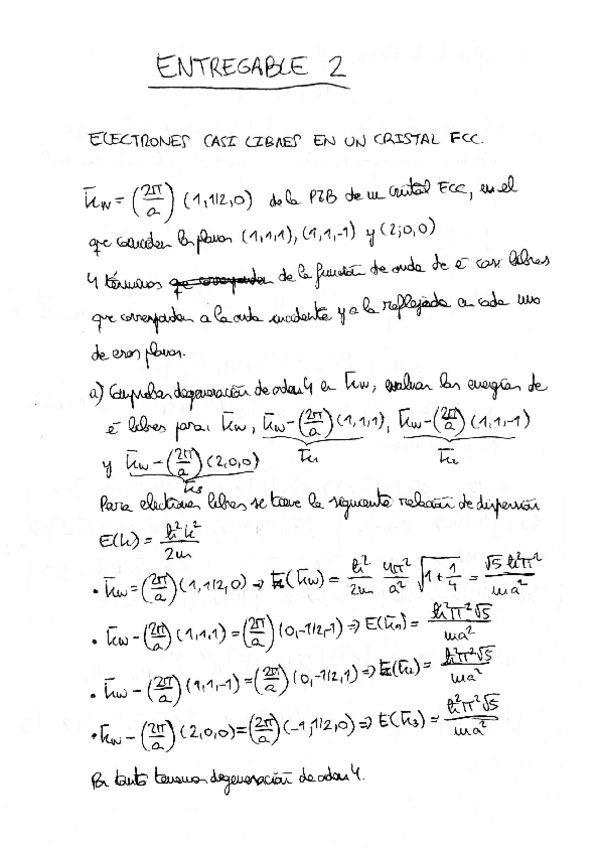 ENTREGABLE 2
ELECTRONES CASI LIBRES EN UN CRISTAL FCC.
k̄w = (2π/a) (1,1/2,0) de la PZB de un cristal FCC, en el
que coinciden los planos (1,1,1), (1,1,-1) y (2;0,0)
4 términos que corresponden de la función de onda de e⁻ casi libres
que corresponden a la onda incidente y a la reflejada en cada uno
de esos planos.
a) Comprobar degeneración de orden 4 en k̄w, evaluar las energías de
e⁻ libres para: k̄w, k̄w-(2π/a)(1,1,1), k̄w-(2π/a)(1,1,-1)
k̄1 k̄2
y k̄w-(2π/a)(2,0,0)
k̄3
Para electrones libres se tiene la siguiente relación de dispersión
E(k) = ħ²k²/2m
• k̄w = (2π/a)(1,1/2,0) => E(k̄w) = ħ²/2m 4π²/a² √1+1/4 = √5 ħ²π²/ma²
• k̄w - (2π/a)(1,1,1) = (2π/a)(0,-1/2,-1) => E(k̄1) = ħ²π²√5/ma²
• k̄w - (2π/a)(1,1,-1) = (2π/a)(0,-1/2,1) => E(k̄2) = ħ²π²√5/ma²
• k̄w - (2π/a)(2,0,0) = (2π/a)(-1,1/2,0) => E(k̄3) = ħ²π²√5/ma²
Por tanto tenemos degeneración de orden 4.